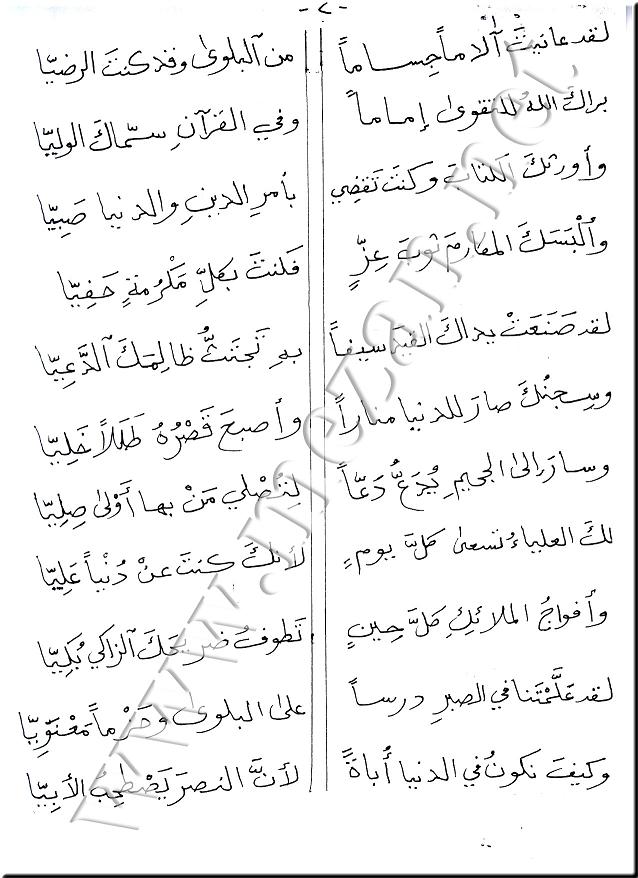 -٢-
لقد عانيتَ آلاماً جساماً من آلبلوى وقد كنتَ الرضيّا
براكَ اللهُ للتقوى إماماً وفي القرآنِ سمّاكَ الوليّا
وأورثكَ الكتابَ وكنتَ تقضي بأمرِ الدينِ والدنيا صَبِيّا
وأَلْبَسَكَ المكارمَ ثوبَ عِزٍّ فكنتَ بكلِّ مَكْرُمةٍ حَفِيّا
لقد صَنَعَتْ يداكَ القيدَ سيفاً بهِ تَجتَثُّ ظالِمَكَ آلدَّعِيّا
وسِجنُكَ صارَ للدنيا مناراً وأصبحَ قَصْرُهُ طَلَلاً خَلِيّا
وسارَ إلى الجحيمِ يُدَعُّ دَعّاً لِتُصْلي مَنْ بها أَوْلى صِلِيّا
لكَ العلياءُ تسعى كلَّ يومٍ لأنكَ كنتَ عنْ دُنْياً عَلِيّا
وأفواجُ الملائكِ كلَّ حينٍ تَطوفُ ضريحَكَ آلزاكي بُكِيّا
لقد عَلَّمْتَنا في الصبرِ درساً على البلوى وحَزْماً مَعْنَوِيّا
وكيفَ نكونُ في الدنيا أُباةً لأنَّ النصرَ يَصْطحِبُ الأبِيّا
www.mezan.net